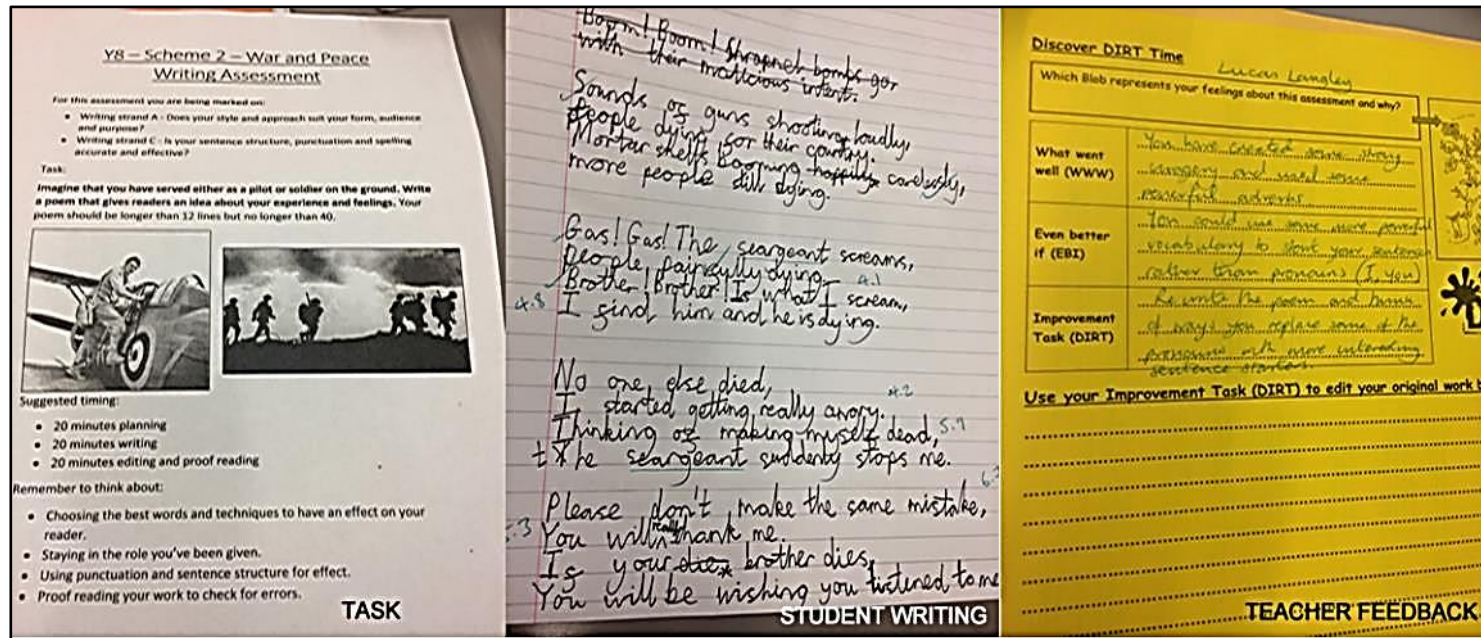 Y8 – Scheme 2 – War and Peace
Writing Assessment
For this assessment you are being marked on:
• Writing strand A - Does your style and approach suit your form, audience
and purpose?
• Writing strand C - Is your sentence structure, punctuation and spelling
accurate and effective?
Task:
Imagine that you have served either as a pilot or soldier on the ground. Write
a poem that gives readers an idea about your experience and feelings. Your
poem should be longer than 12 lines but no longer than 40.
Suggested timing:
• 20 minutes planning
• 20 minutes writing
• 20 minutes editing and proof reading
Remember to think about:
• Choosing the best words and techniques to have an effect on your
reader.
• Staying in the role you've been given.
• Using punctuation and sentence structure for effect.
• Proof reading your work to check for errors.
TASK
Boom! Boom! Shrapnel bombs go
with their malicious intent.
Sounds of guns shooting loudly,
People dying for their country.
Mortar shells booming happily carelessly,
more people still dying.
Gas! Gas! The seargeant screams,
People painfully dying.
4.1
Brother! Brother! Is what I scream,
4.8 I find him and he is dying.
No one else died,
4.2
I started getting really angry.
Thinking of making myself dead, 5.9
t The seargeant suddenly stops me.
Please don't make the same mistake,
You will really thank me.
If your dies brother dies,
You will be wishing you listened to me
STUDENT WRITING
Discover DIRT Time
Lucas Langley
Which Blob represents your feelings about this assessment and why?
What went
well (WWW)
You have created some strong
imagery and used some
powerful adverbs
Even better
if (EBI)
You could use some more powerful
vocabulary to start your sentences
rather than pronouns (I, you)
Improvement
Task (DIRT)
Re write the poem and think
of ways you replace some of the
pronouns with more interesting
sentence starters.
Use your Improvement Task (DIRT) to edit your original work b
TEACHER FEEDBACK